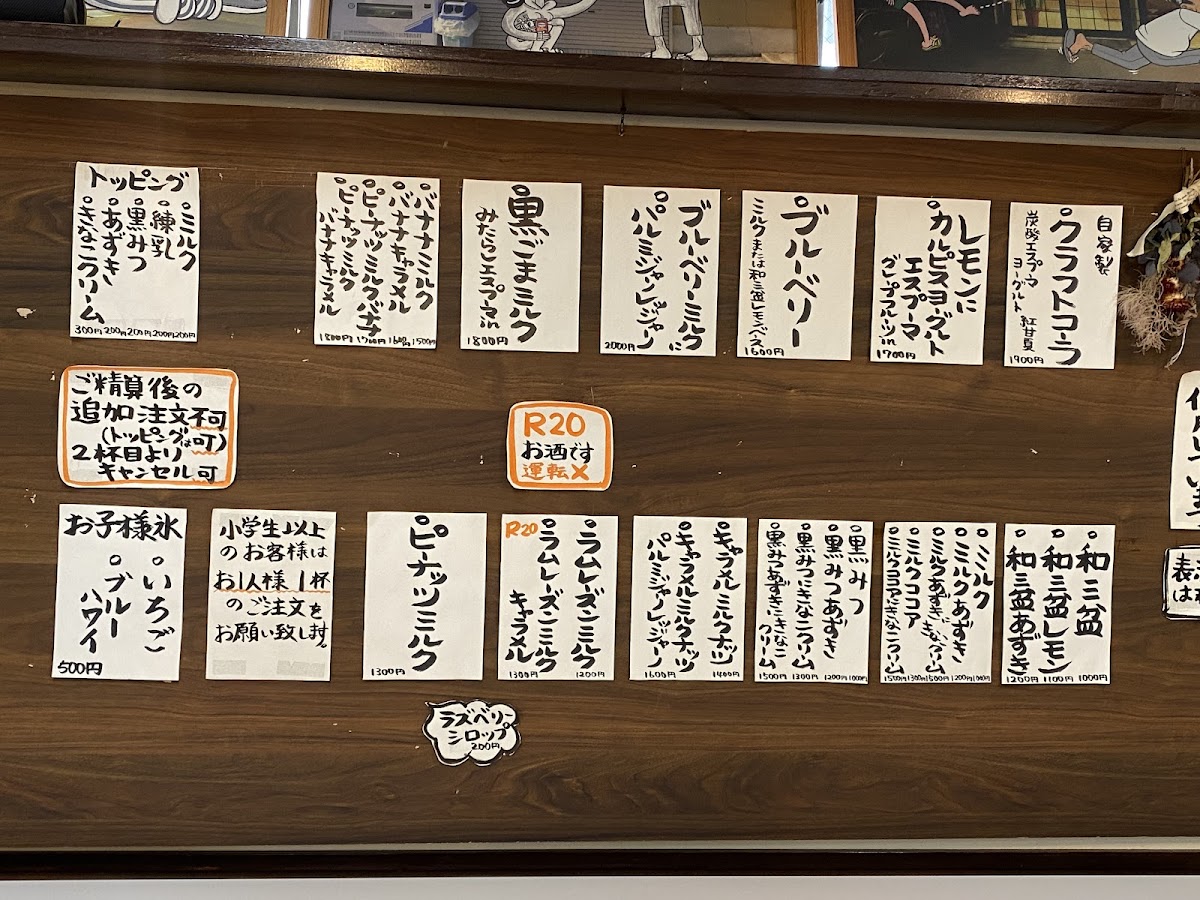 自家製
クラフトコーラ
炭酸エスプーマ
ヨーグルト 紅甘夏
1900円
レモンに
カルピスヨーグルト
エスプーマ
グレープフルーツin
1700円
ブルーベリー
ミルクまたは和三盆レモンベース
1600円
ブルーベリーミルクに
パルミジャーノレッジャーノ
2000円
黒ごまミルク
みたらしエスプーマin
1800円
バナナミルク
バナナキャラメル
ピーナッツミルクバナナ
ピーナッツミルク
バナナキャラメル
1800円 1700円 1600円 1500円
トッピング
ミルク
練乳
黒みつ
あずき
きなこクリーム
300円 200円 200円 200円 200円
ご精算後の
追加注文不可
(トッピングは可)
2杯目より
キャンセル可
R20
お酒です
運転×
和三盆
和三盆レモン
和三盆あずき
1200円 1100円 1000円
ミルク
ミルクあずき
ミルクあずききなこクリーム
ミルクココア
ミルクココアきなこクリーム
1500円 1300円 1500円 1200円 1000円
黒みつ
黒みつあずき
黒みつきなこクリーム
黒みつあずききなこ
クリーム
1500円 1300円 1200円 1000円
キャラメルミルクナッツ
キャラメルミルクナッツ
パルミジャーノレッジャーノ
1600円 1400円
R20
ラムレーズンミルク
ラムレーズンミルク
キャラメル
1300円 1200円
ピーナッツミルク
1300円
小学生以上
のお客様は
お1人様1杯
のご注文を
お願い致します。
お子様氷
いちご
ブルー
ハワイ
500円
ラズベリー
シロップ
200円